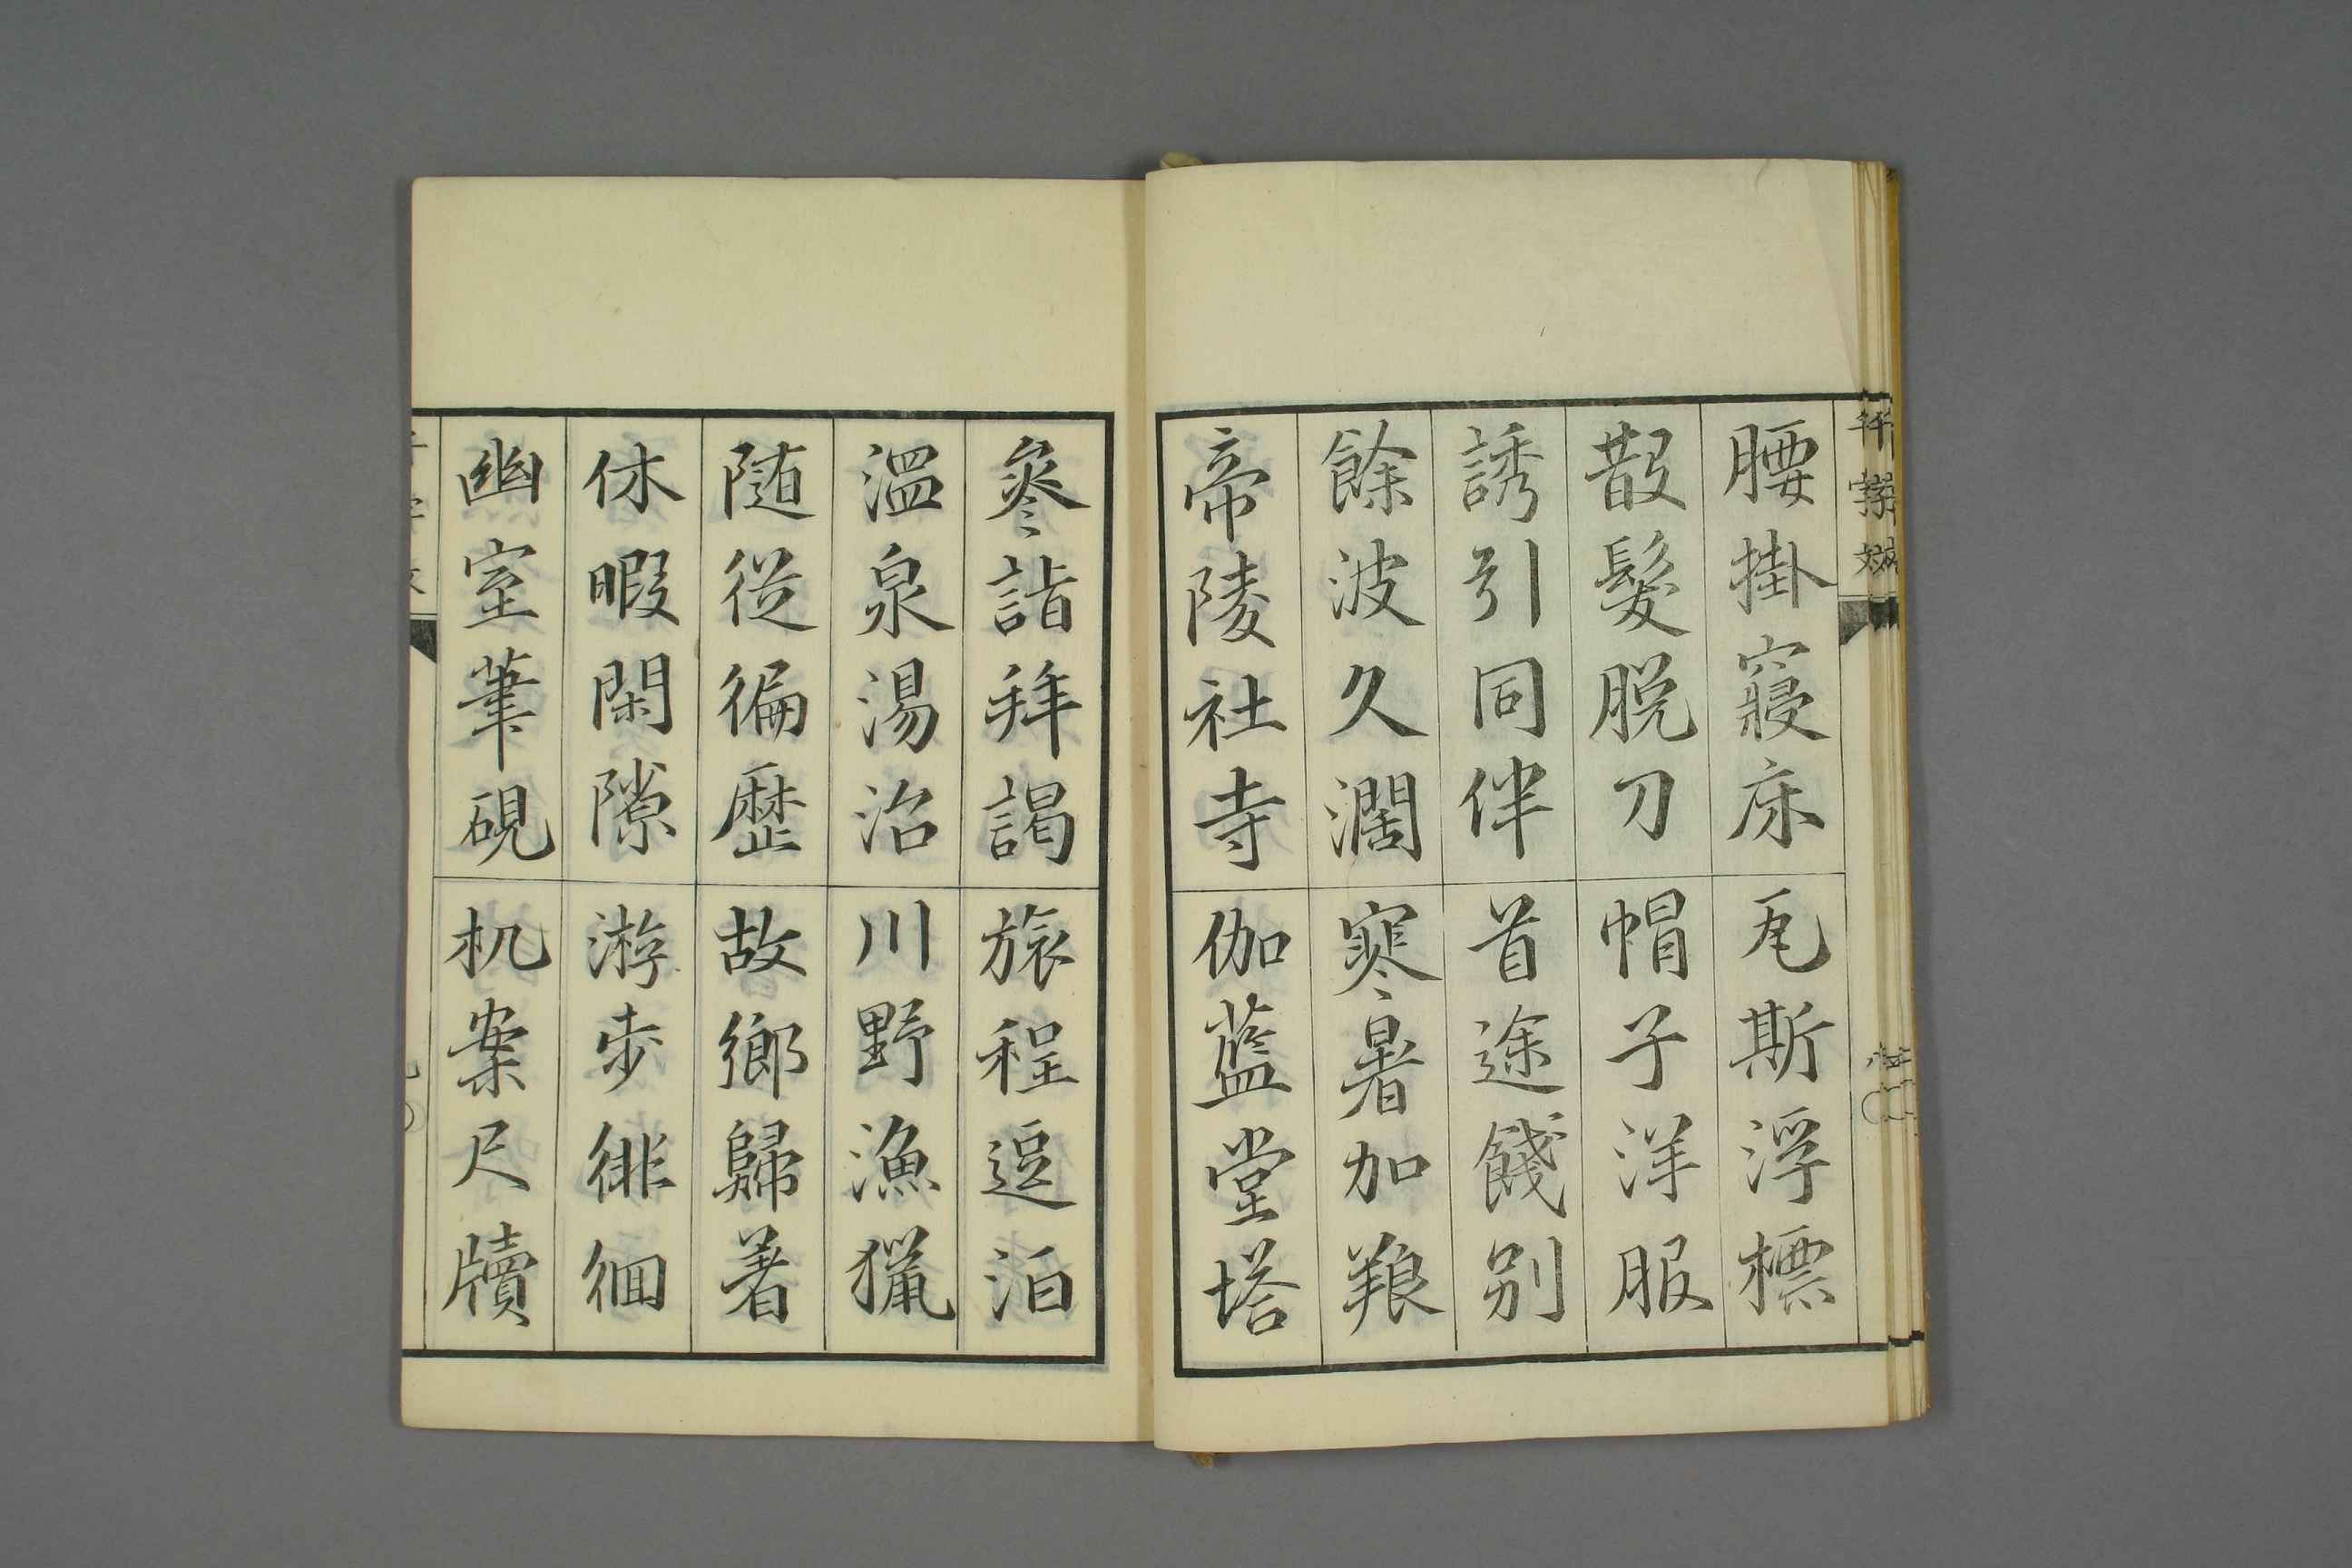 腰掛寢床瓦斯浮標
散髮脫刀帽子洋服
誘引同伴首途餞別
餘波久濶寒暑加飱
帝陵社寺伽藍堂塔
參詣拜謁旅程逗泊
溫泉湯治川野漁獵
随從徧歷故鄉歸著
休暇閑隙游步徘徊
幽室筆硯机案尺牘